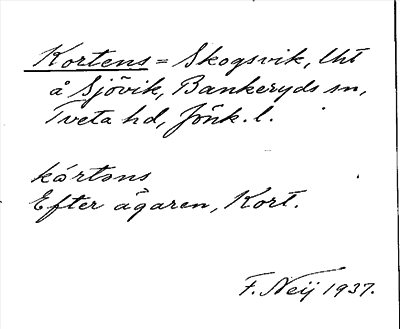 Kortens = Skogsvik, lht
å Sjövik, Bankeryds sn,
Tveta hd, Jönk. l.
kårtons
Efter ägaren, Kort.
F. Neij 1937.